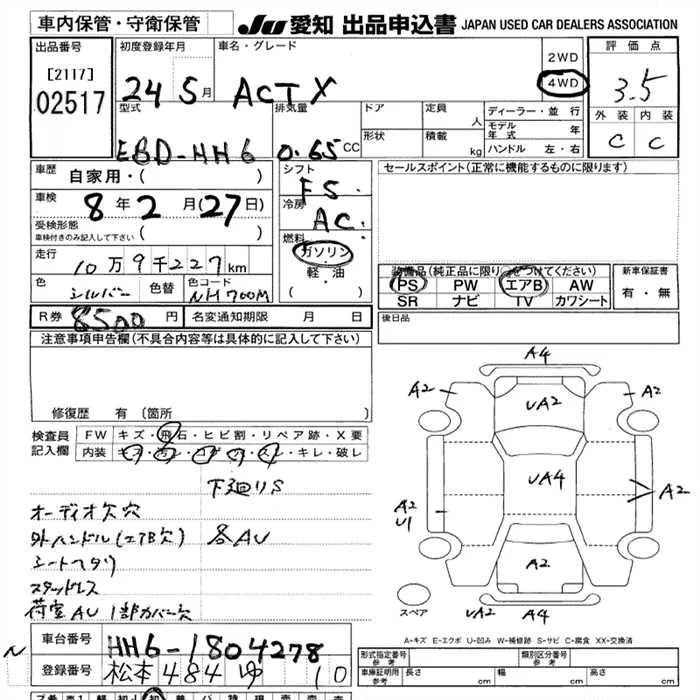 車内保管・守衛保管
JU 愛知 出品申込書 JAPAN USED CAR DEALERS ASSOCIATION
出品番号
[2117]
02517
初度登録年月
24 5 月
車名・グレード
ACTX
2WD
4WD
評価点
3.5
外装 内装
C C
型式
EBD-HH6
排気量
0.65 CC
ドア
定員 人
形状
積載 kg
ディーラー・並行
モデル年式 年
ハンドル 左・右
車歴 自家用・( )
車検 8年2月(27日)
受検形態
車検付きのみ記入して下さい ( )
シフト
F5
冷房
AC
燃料
ガソリン
軽・油
( )
セールスポイント(正常に機能するものに限ります)
走行
10万9千227km
色 シルバー 色替 色コード NH700M
装備品(純正品に限り をつけてください)
PS PW エアB AW
SR ナビ TV カワシート
新車保証書
有・無
R券 8500 円 名変通知期限 月 日
後日品
注意事項申告欄(不具合内容等は具体的に記入して下さい)
修復歴 有 (箇所
検査員記入欄
FW キズ・飛石・ヒビ割・リペア跡・X要
内装 キズ・汚レ・コゲ・穴・スレ・キレ・破レ
下廻りS
オーディオ欠穴
外ハンドル(エアB欠) 各AU
シートヘタリ
スタッドレス
荷室AU 1部カバー欠
A4
A2
UA2
A2
UA4
A2
U1
A2
A2
スペア
UA2
A4
A-キズ E-エクボ U-凹み W-補修跡 S-サビ C-腐食 XX-交換済
N
車台番号 HH6-1804278
登録番号 松本 484 ゆ 10
形式指定番号
参考
類別区分番号
参考
車庫証明用
参考
長さ cm 幅 cm 高さ cm